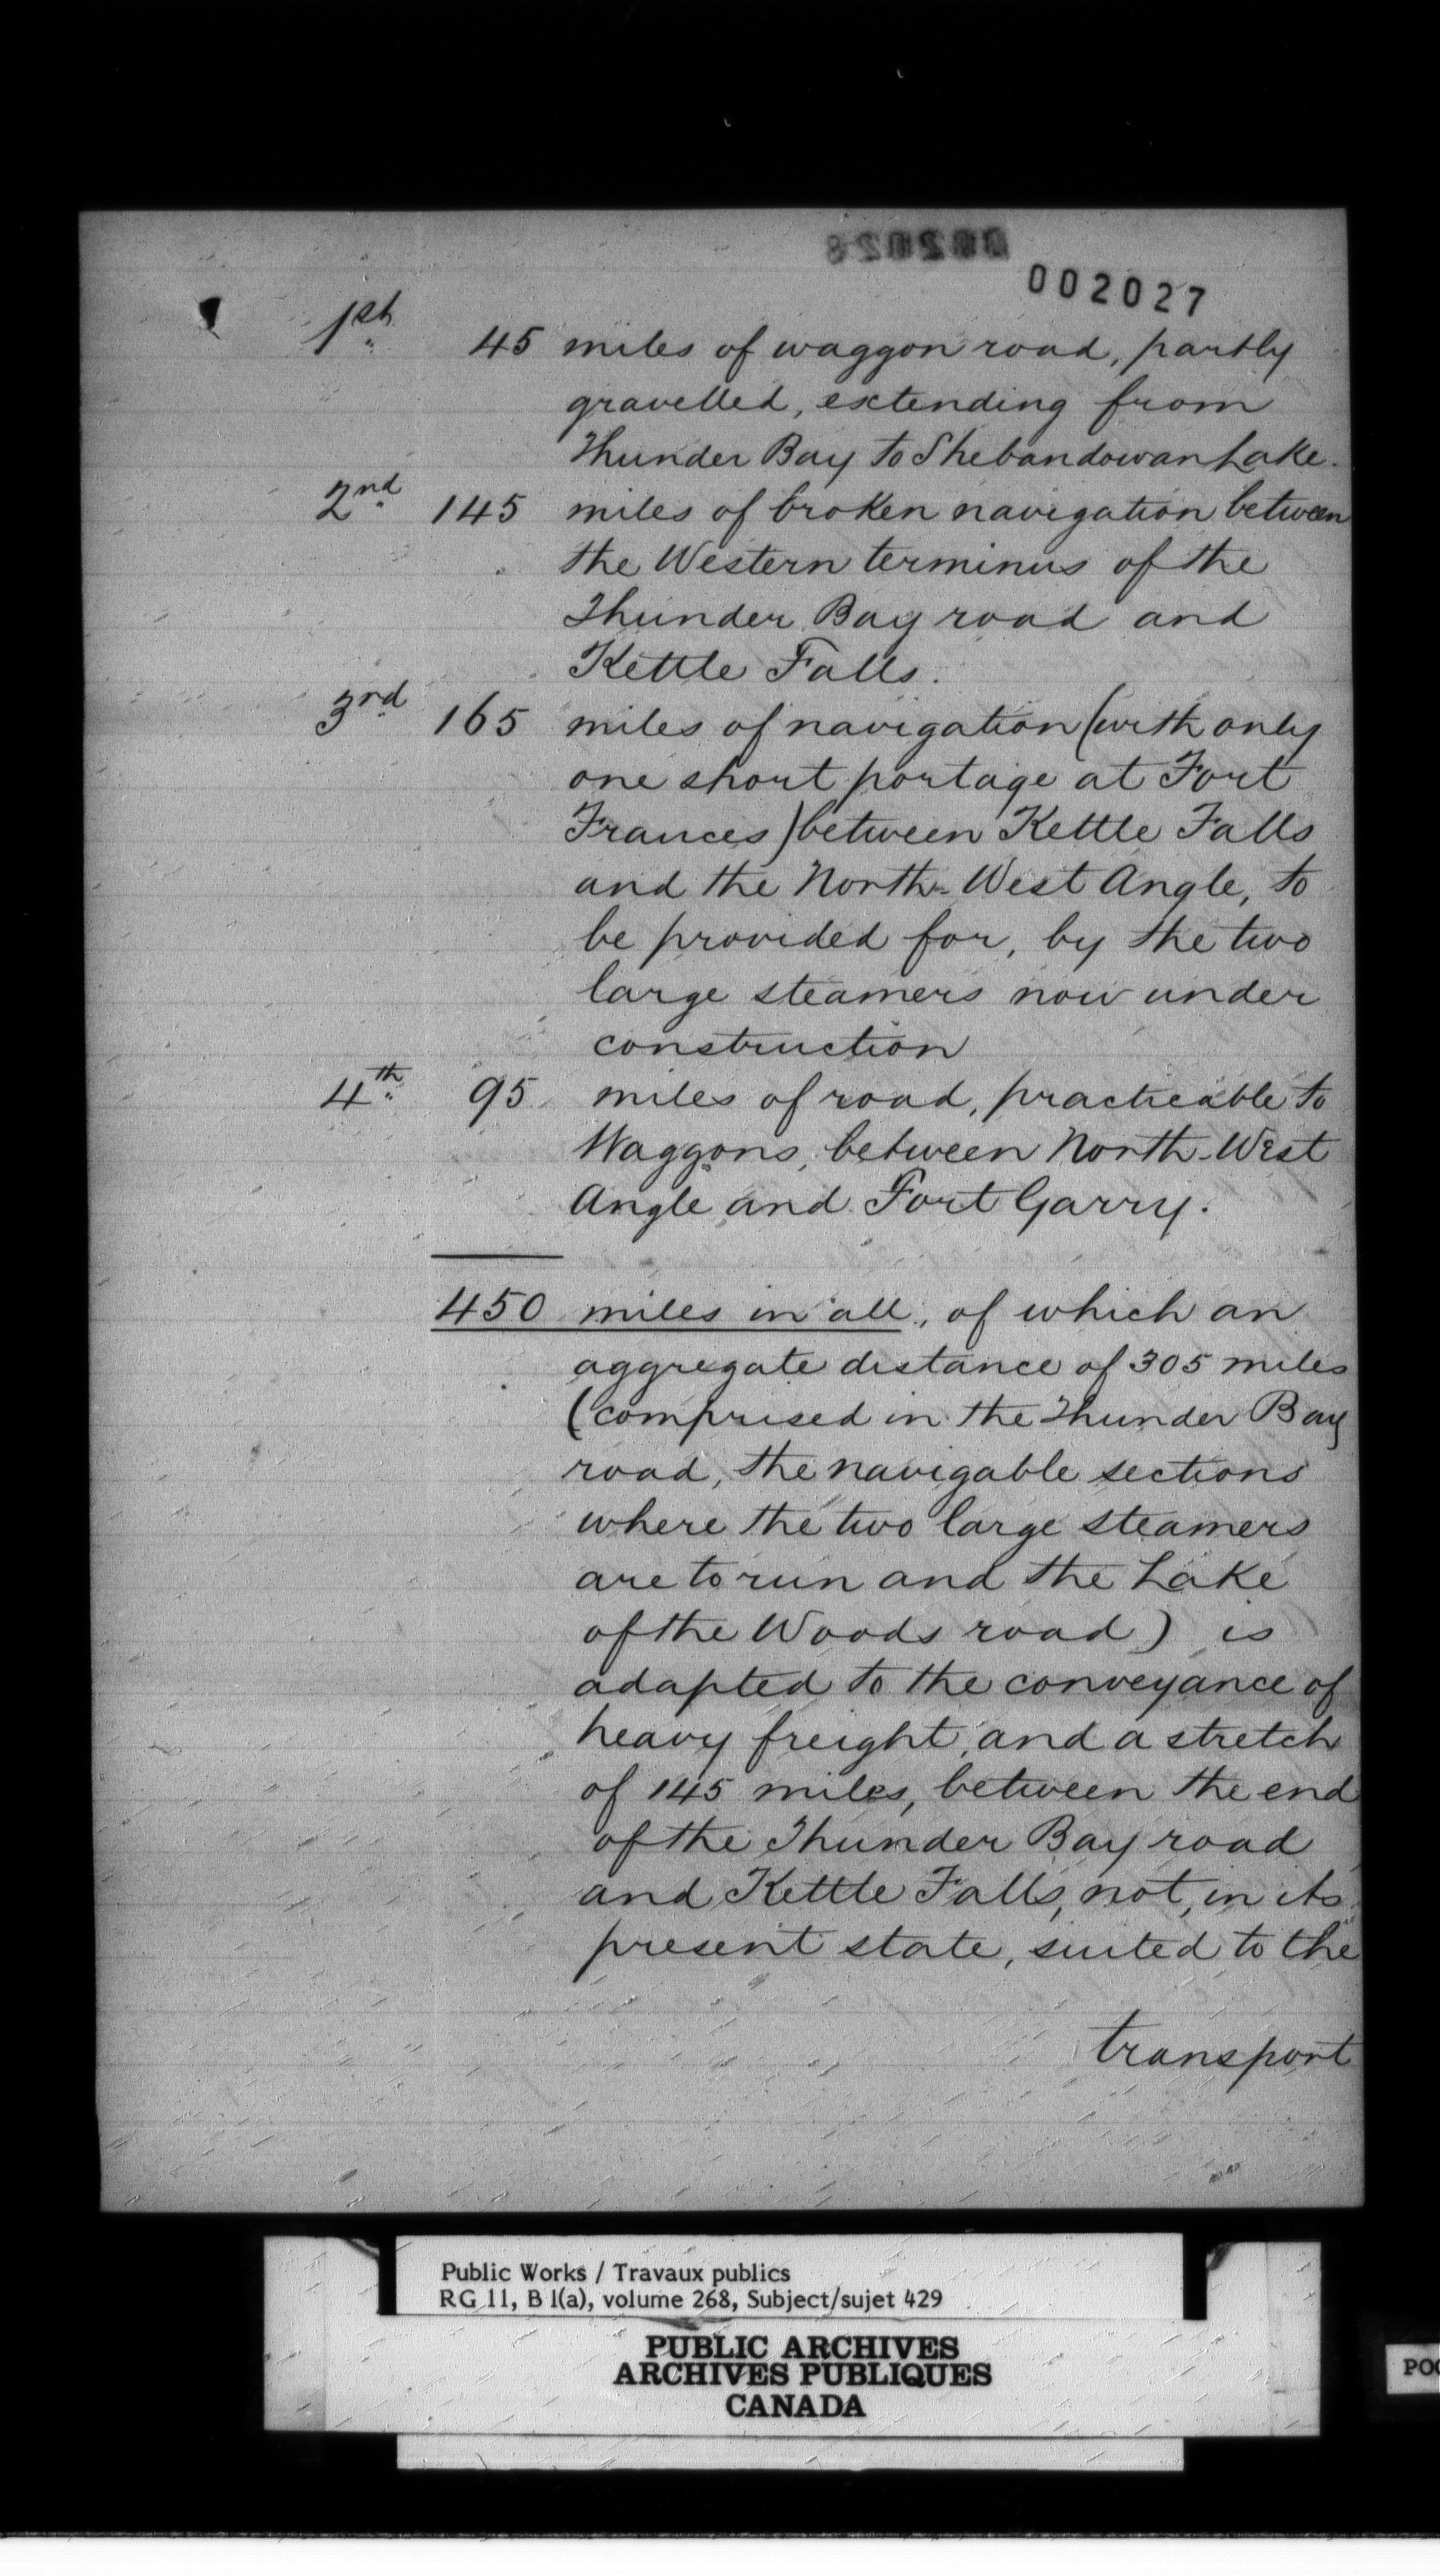 002028
002027
1st. 45 miles of waggon road, partly
gravelled, extending from
Thunder Bay to Shebandowan Lake.
2nd. 145 miles of broken navigation between
the Western terminus of the
Thunder Bay road and
Kettle Falls.
3rd. 165 miles of navigation (with only
one short portage at Fort
Frances) between Kettle Falls
and the North-West Angle, to
be provided for, by the two
large steamers now under
construction
4th. 95 miles of road, practicable to
Waggons, between North-West
Angle and Fort Garry.
450 miles in all, of which an
aggregate distance of 305 miles
(comprised in the Thunder Bay
road, the navigable sections
where the two large steamers
are to run and the Lake
of the Woods road) is
adapted to the conveyance of
heavy freight, and a stretch
of 145 miles, between the end
of the Thunder Bay road
and Kettle Falls, not, in its
present state, suited to the
transport
Public Works / Travaux publics
RG 11, B 1(a), volume 268, Subject/sujet 429
PUBLIC ARCHIVES
ARCHIVES PUBLIQUES
CANADA